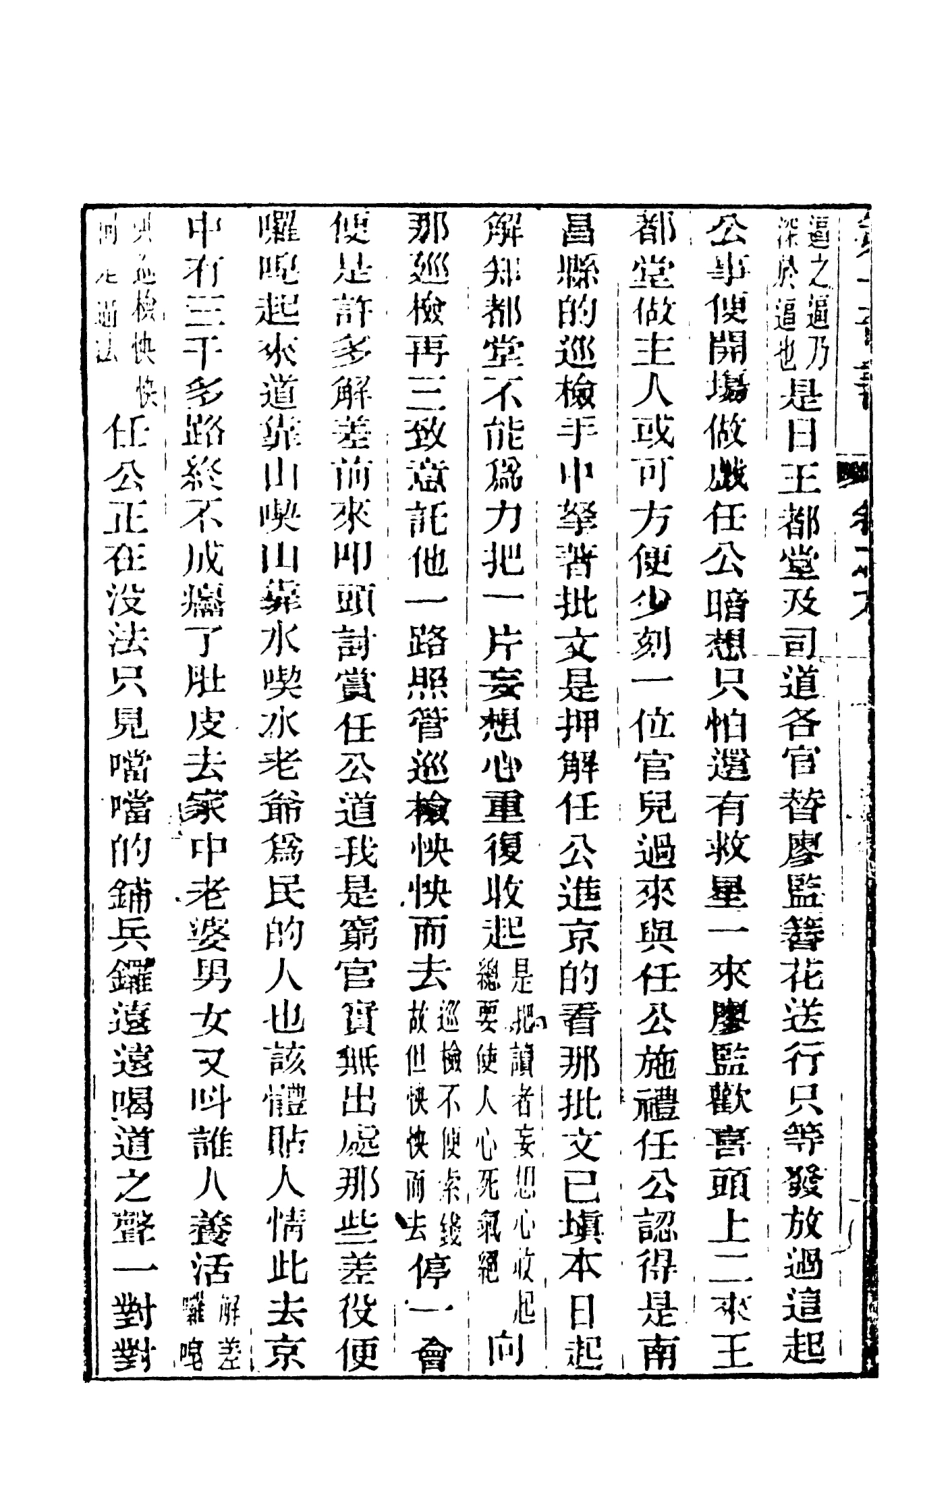 逼之逼乃深於逼也是日王都堂及司道各官替廖監簪花送行只等發放過這起
公事便開場做戲任公暗想只怕還有救星一來廖監歡喜頭上二來王
都堂做主人或可方便少刻一位官兒過來與任公施禮任公認得是南
昌縣的巡檢手中拏著批文是押解任公進京的看那批文已塡本日起
解知都堂不能爲力把一片妄想心重復收起是把讀者妄想心收起總要使人心死氣絕向
那巡檢再三致意託他一路照管巡檢怏怏而去巡檢不便索錢故但怏怏而去停一會
便是許多解差前來叩頭討賞任公道我是窮官實無出處那些差役便
囉唣起來道靠山喫山靠水喫水老爺爲民的人也該體貼人情此去京
中有三千多路終不成癟了肚皮去家中老婆男女又呌誰人養活解差囉唣
與巡檢怏怏任公正在没法只見噹噹的鋪兵鑼遠遠喝道之聲一對對